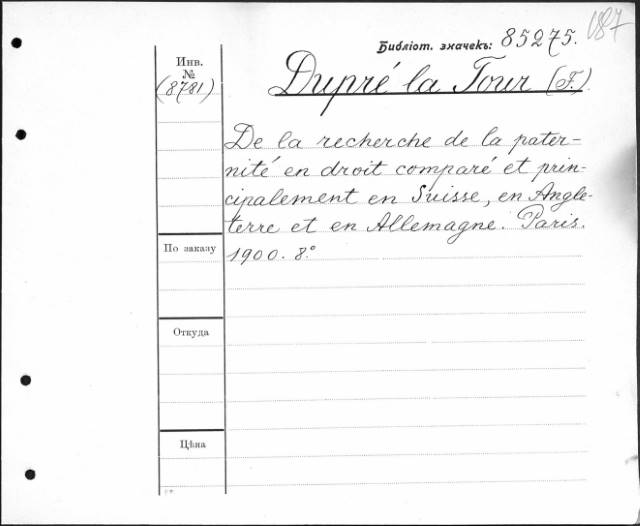 Библіот. значекъ: 85275.
Инв.
№
(8781)
Dupré la Tour (F.)
De la recherche de la pater-
nité en droit comparé et prin-
cipalement en Suisse, en Angle-
terre et en Allemagne. Paris.
1900. 8°
По заказу
Откуда
Цѣна